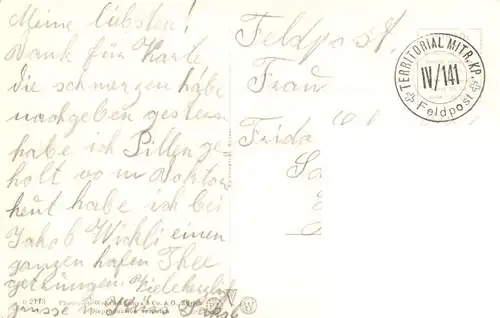 Meine liebsten!
Dank für Karte
die schmerzen habe
nachgeben gestern
habe ich Pillen ge-
holt vom Doktor
heut habe ich bei
Jakob Wickli einen
ganzen hafen Thee
getrunken.
grüsse
Jakob
Feldpost.
Frau
Frida
TERRITORIAL MITR. KP.
IV/141
Feldpost